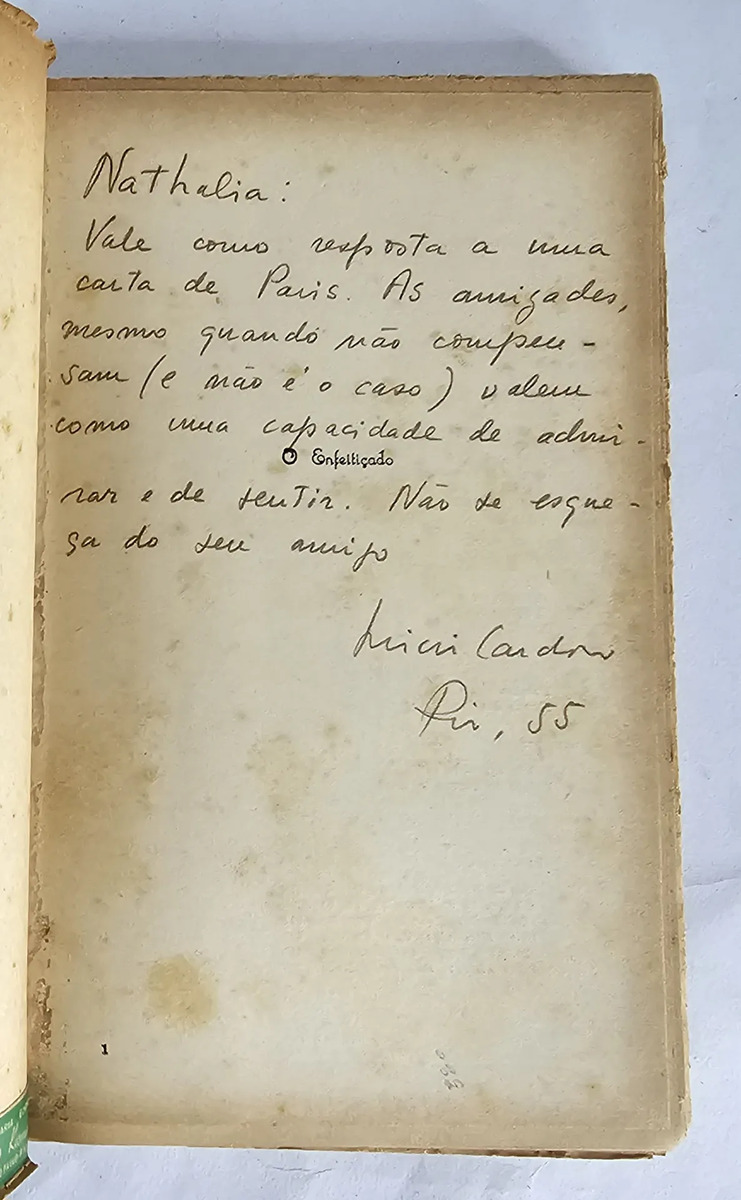 Nathalia:
Vale como resposta a uma
carta de Paris. As amizades,
mesmo quando não compen-
sam (e não é o caso) valem
como uma capacidade de admi-
O Enfeitiçado
rar e de sentir. Não se esque-
ça do seu amigo
Lúcio Cardoso
Rio, 55
1